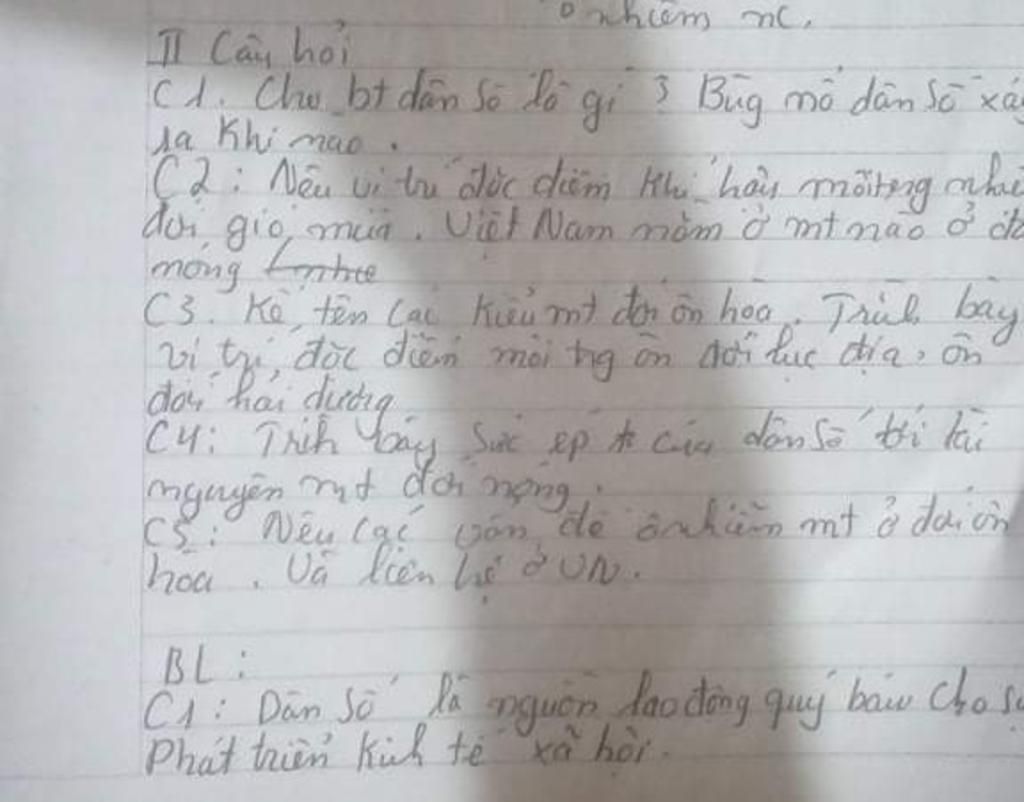 ô nhiễm nc.
II Câu hỏi
C1. Cho bt dân số là gì ? Bùg nổ dân số xảy
ra khi nào.
C2: Nêu vị trí đặc điểm khí hậu môi trg nhiệt
đới gió mùa. Việt Nam nằm ở mt nào ở đới
nóng
C3. Kể tên các kiểu mt đới ôn hòa. Trình bày
vị trí, đặc điểm môi trg ôn đới lục địa, ôn
đới hải dương
C4: Trình bày sức ép của dân số tới tài
nguyên mt đới nóng.
C5: Nêu các vấn đề ô nhiễm mt ở đới ôn
hòa. Và liên hệ ở VN.
BL:
C1: Dân số là nguồn lao động quý báu cho sự
Phát triển kinh tế xã hội.